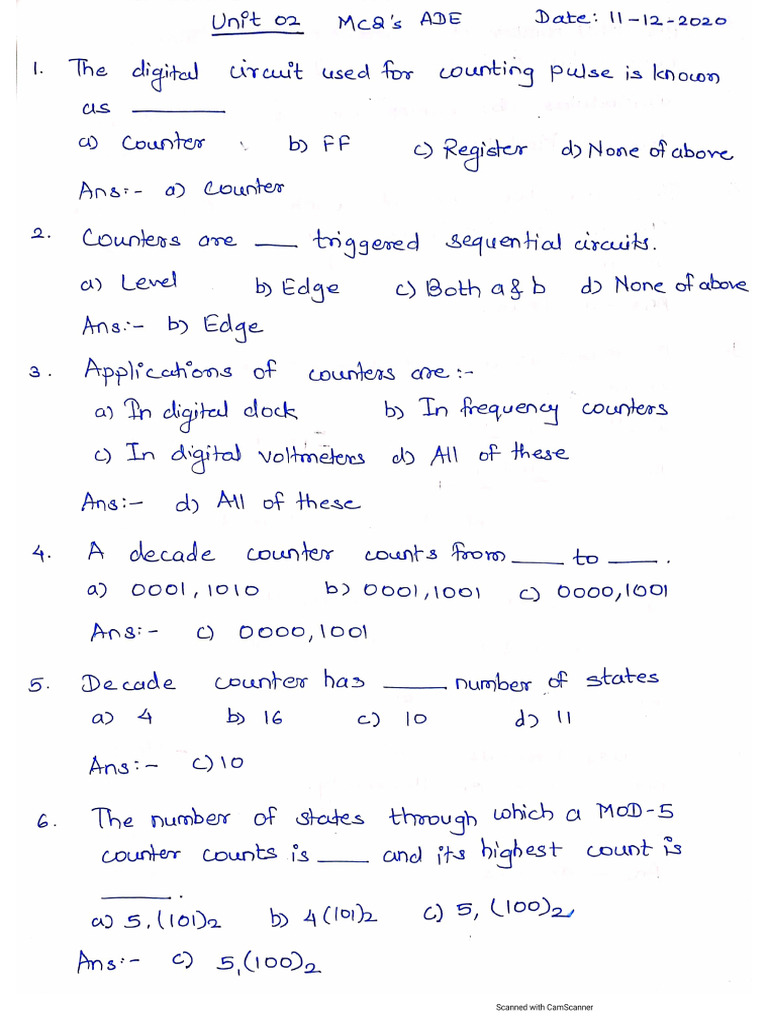 Unit 02 MCQ's ADE Date: 11-12-2020
1. The digital circuit used for counting pulse is known
as ______
a) Counter b) FF c) Register d) None of above
Ans:- a) Counter
2. Counters are ___ triggered sequential circuits.
a) Level b) Edge c) Both a & b d) None of above
Ans:- b) Edge
3. Applications of counters are:-
a) In digital clock b) In frequency counters
c) In digital voltmeters d) All of these
Ans:- d) All of these
4. A decade counter counts from ___ to ___.
a) 0001, 1010 b) 0001, 1001 c) 0000, 1001
Ans:- c) 0000, 1001
5. Decade counter has ____ number of states
a) 4 b) 16 c) 10 d) 11
Ans:- c) 10
6. The number of states through which a MOD-5
counter counts is ___ and its highest count is
_____.
a) 5, (101)2 b) 4 (101)2 c) 5, (100)2
Ans:- c) 5, (100)2
Scanned with CamScanner